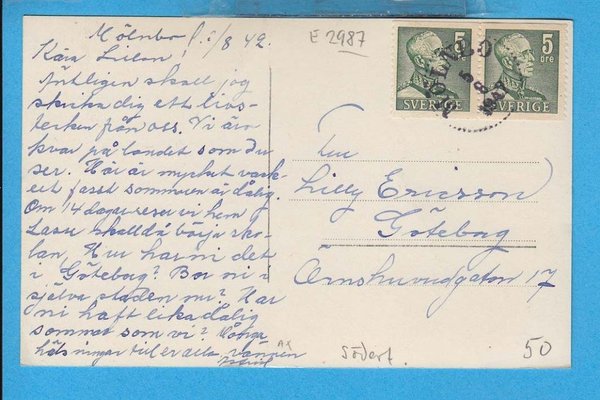 Mölnbo 6/8 42.
Kära Lillan!
Äntligen skall jag
skicka dig ett livs-
tecken från oss. Vi äro
kvar på landet som du
ser. Här är mycket vack-
ert fasst sommaren är dålig.
Om 14 dagar reser vi hem
Lasse skall då börja sko-
lan. Hur har ni det
i Göteborg? Bor ni i
själva staden nu? Har
ni haft lika dålig
sommar som vi? Många
hälsningar till er alla vännen
E 2987
5 öre SVERIGE
5 öre SVERIGE
MÖLNBO
Fru
Lilly Ericsson
Göteborg
17
Södert.
50